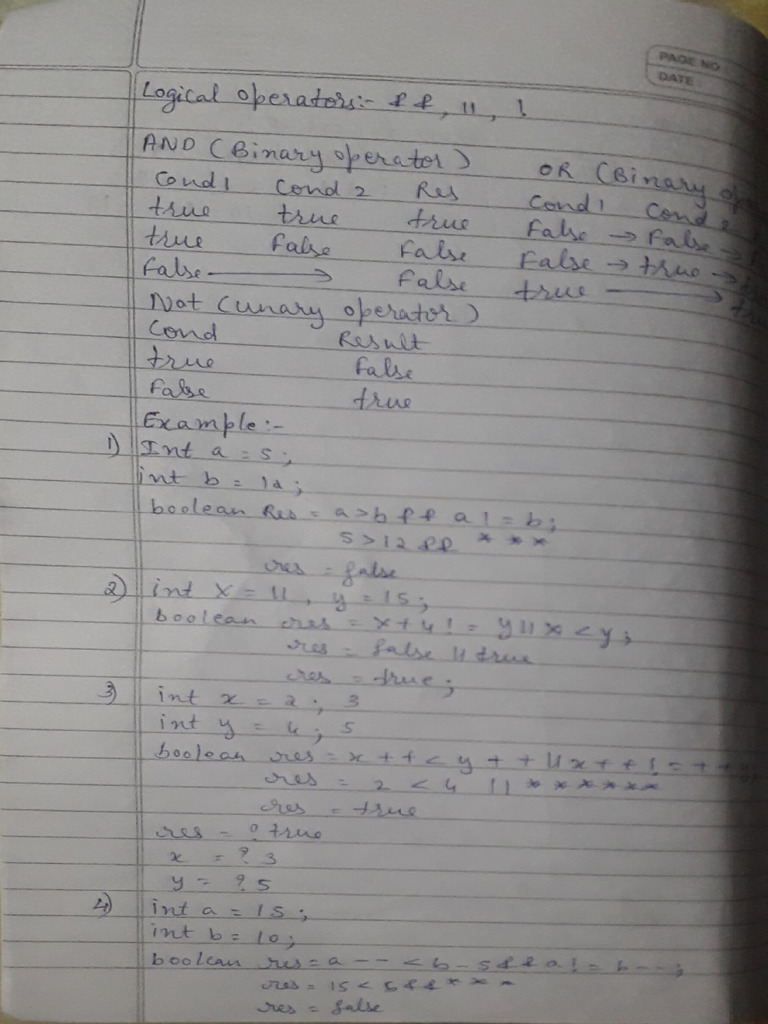 PAGE NO
DATE
Logical operators:- &&, ||, !
AND (Binary operator) OR (Binary
Cond1 Cond2 Res Cond1 Cond2
true true true False → False →
true False False False → true →
False → False true →
Not (unary operator)
Cond Result
true False
False true
Example:-
1) Int a = 5;
int b = 12;
boolean Res = a>b && a! = b;
5>12 && * * *
res = false
2) int x = 11, y = 15;
boolean res = x+4! = y||x<y;
res = false || true
res = true;
3) int x = 2; 3
int y = 4; 5
boolean res = x++<y++||x++!=++
res = 2<4 || * * * * * *
res = true
res = ? true
x = ? 3
y = ? 5
4) int a = 15;
int b = 10;
boolean res=a--<b-5&&a!=b--;
res = 15<5&&* * *
res = false